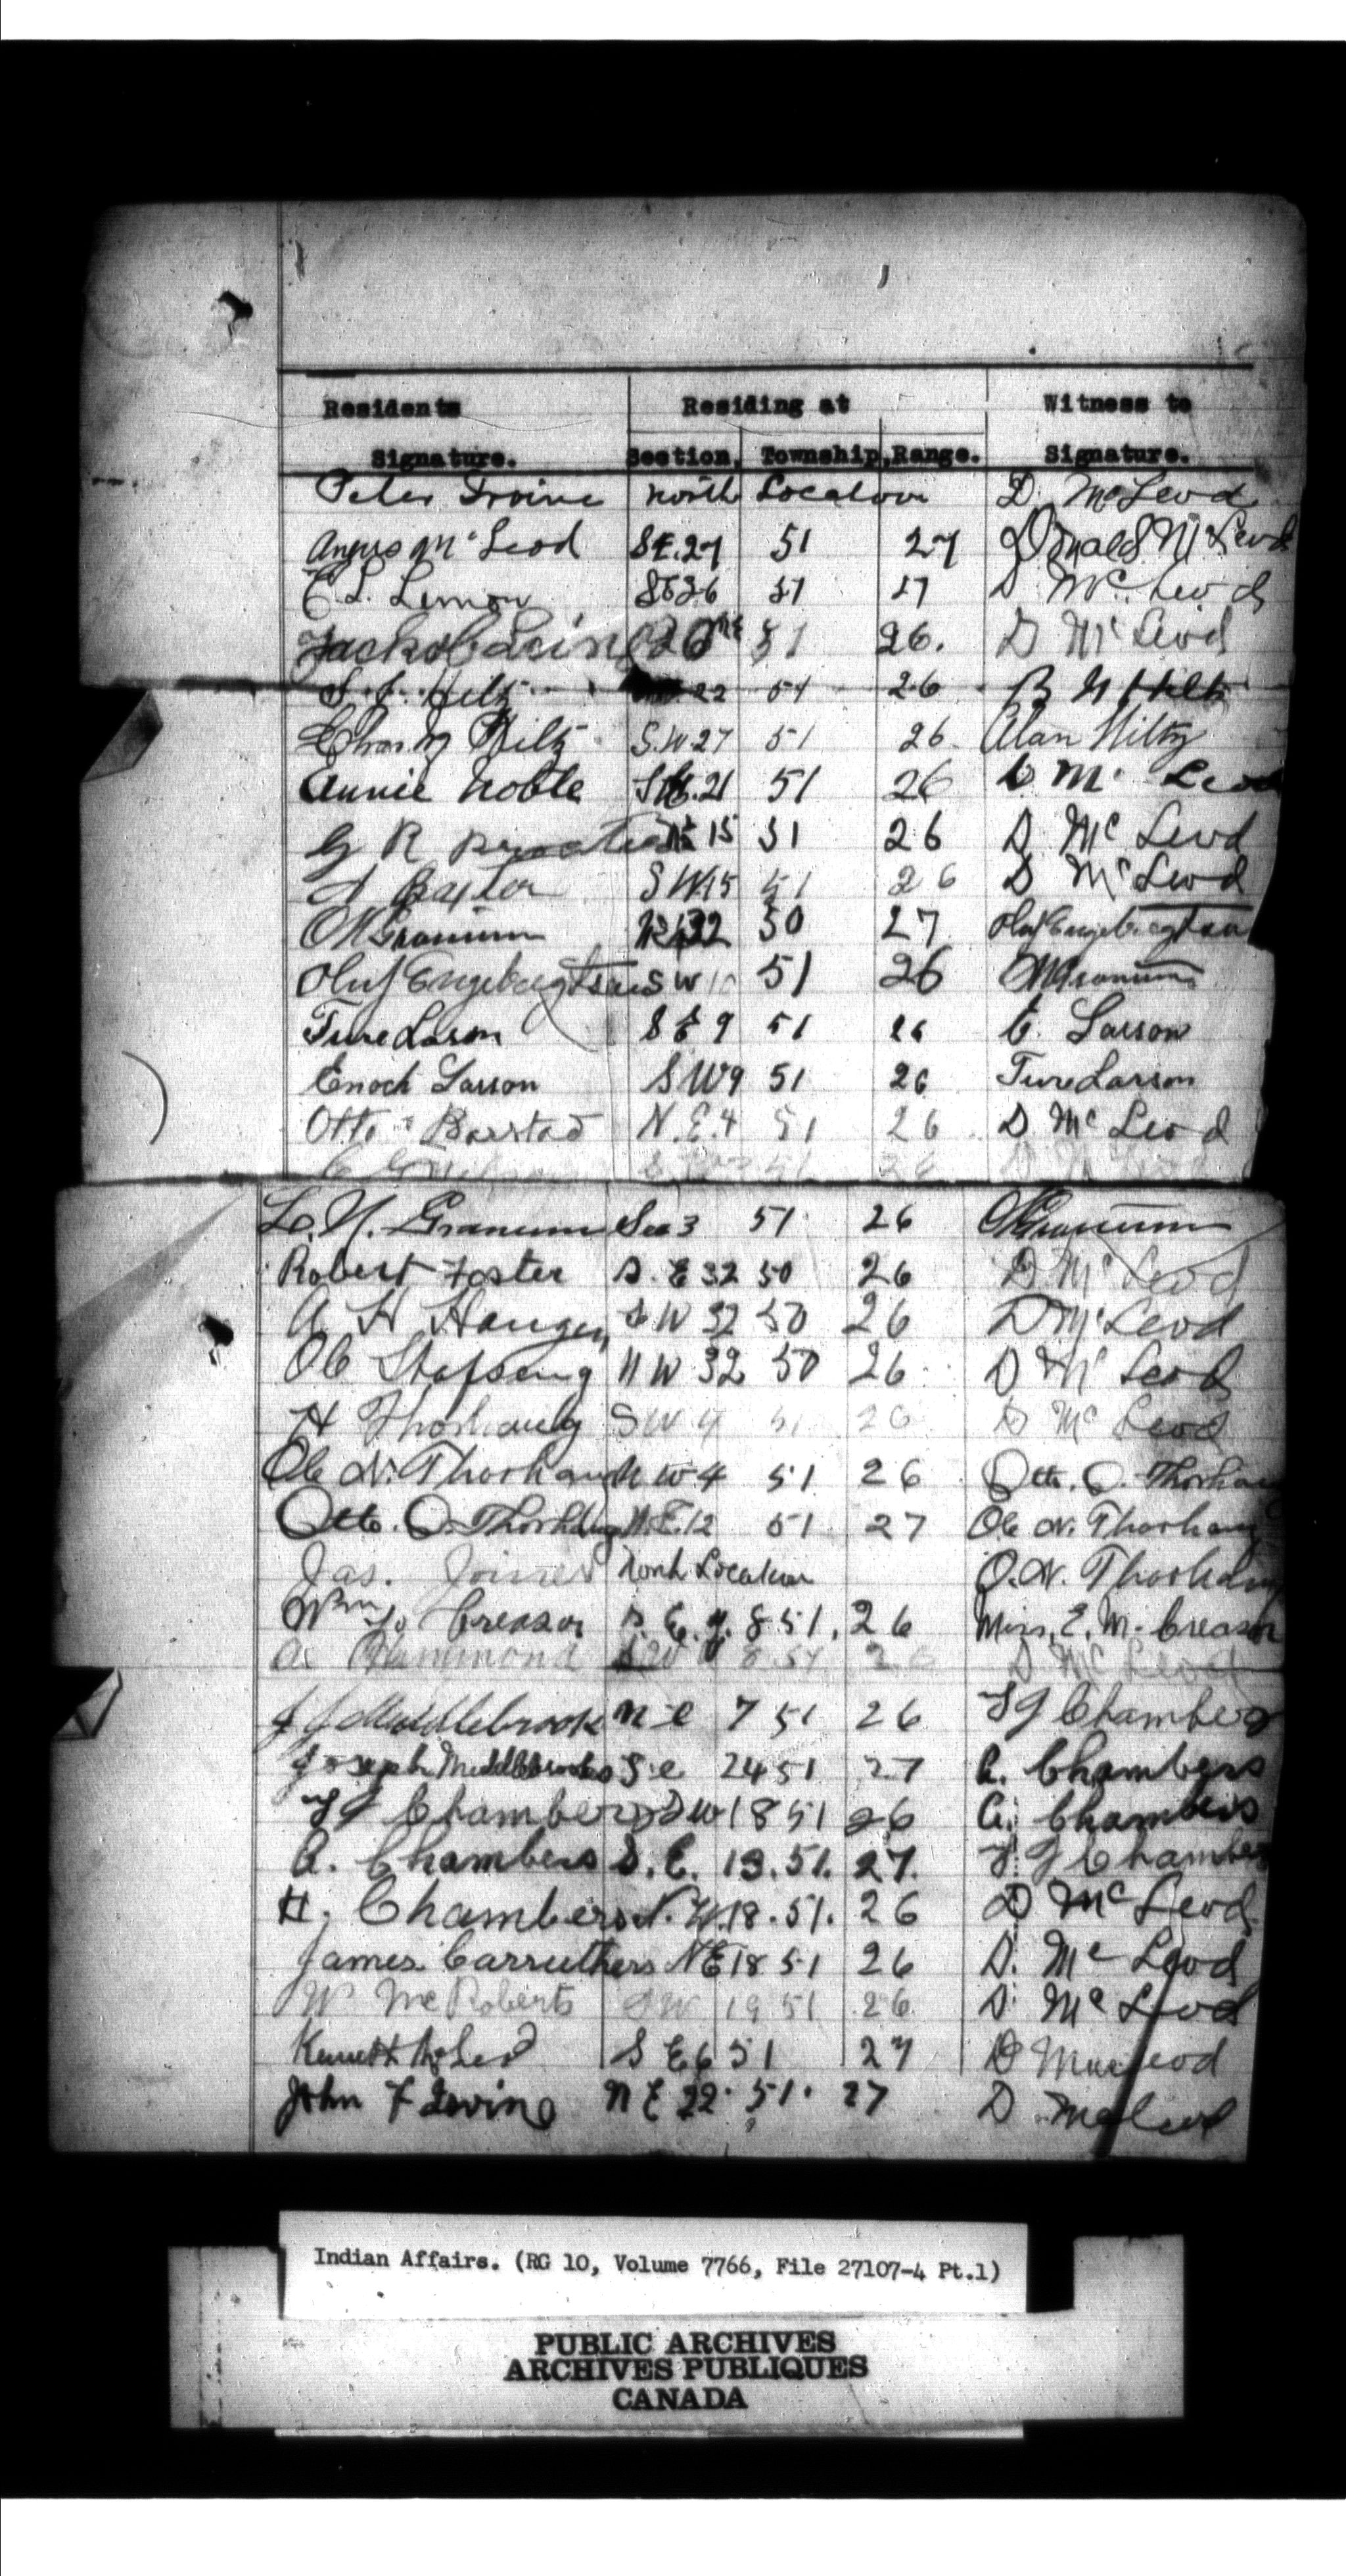 Residents Residing at Witness to
Signature. Section, Township, Range. Signature.
Peter Irvine North Location D. McLeod
Angus McLeod SE.27 51 27 Donald McLeod
L. Lemon 51 27 D McLeod
26 51 26. D McLeod
Hiltz 22 51 26
Hiltz S.W.27 51 26 Alan Hiltz
Annie Noble 21 51 26 D McLeod
G R 15 51 26 D McLeod
Baxter SW15 51 26 D McLeod
Granum 32 50 27 Oluf Engebregtsen
Oluf Engebregtsen SW 10 51 26 Granum
Ture Larson S E 9 51 26 E. Larson
Enoch Larson S W 9 51 26 Ture Larson
Otto Barstad N.E.4 51 26 D McLeod
51 26
L. N. Granum Sec 3 51 26 Granum
Robert Foster S. E 32 50 26 D McLeod
A H Haugen S W 32 50 26 D McLeod
Ole N W 32 50 26 D McLeod
H Thorhaug SW 4 51 26 D McLeod
Ole N. Thorhaug N W 4 51 26 Otto. O. Thorhaug
Otto. O. Thorhaug N.E.12 51 27 Ole N. Thorhaug
Jas. Joiner North Location O. N. Thorhaug
Wm Creasor S. E. 8 51, 26 Miss. E. M. Creasor
Hammond S W 26 D McLeod
J J Middlebrook N-e 7 51 26 Chambers
Joseph Middlebrooks S.e 24 51 27 A. Chambers
Chambers S W 18 51 26 A. Chambers
A. Chambers S. E. 13. 51. 27. Chambers
H. Chambers N. W. 18. 51. 26 D McLeod
James Carruthers NE 18 51 26 D. McLeod
W McRoberts S W 19 51 26 D. McLeod
Kenneth McLeod S E 6 51 27 D MacLeod
John F Irvine N E 22. 51. 27 D McLeod
Indian Affairs. (RG 10, Volume 7766, File 27107-4 Pt.1)
PUBLIC ARCHIVES
ARCHIVES PUBLIQUES
CANADA